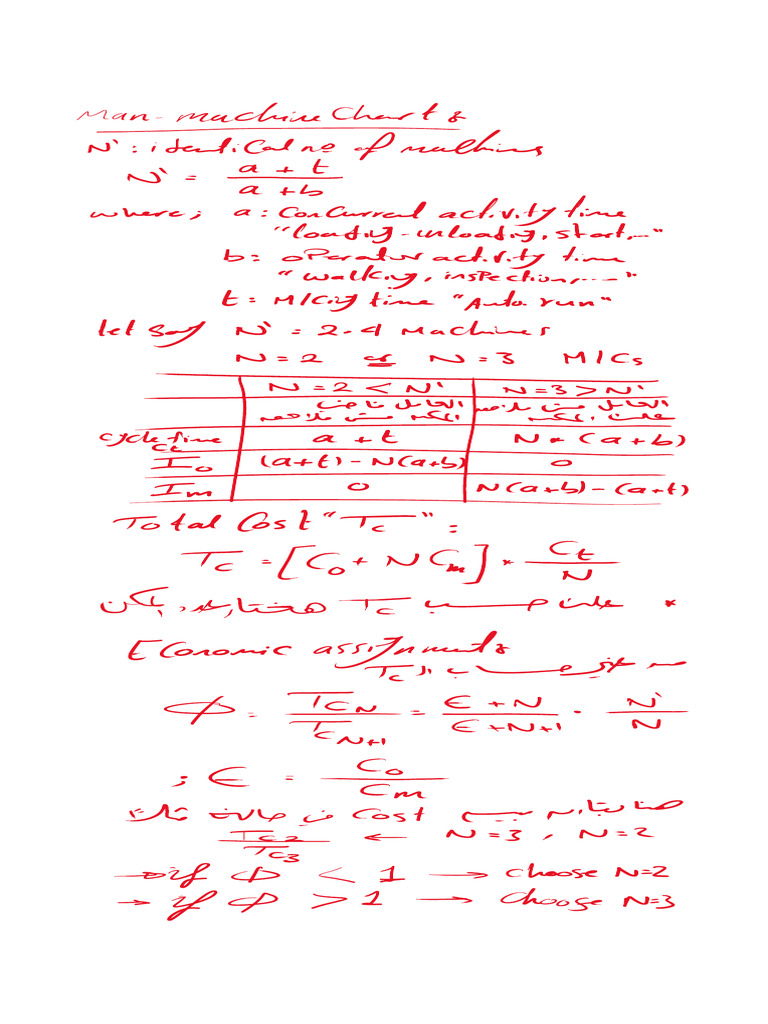 Man-machine Charts
N' : identical no of machines
N' = (a + t) / (a + b)
where; a: Concurrent activity time
"loading-unloading, start, ..."
b = operator activity time
"walking, inspection, ...."
t = M/Cing time "Auto. run"
let say N' = 2.4 Machines
N = 2 or N = 3 M/Cs
N = 2 < N' | N = 3 > N'
العامل فاضي | العامل مش ملاحق
المكن مش ملاحق | على المكن
cycle time Ct | a + t | N * (a + b)
Io | (a+t) - N(a+b) | 0
Im | 0 | N(a+b) - (a+t)
Total Cost "Tc" :
Tc = [Co + N Cm] * Ct / N
* علشان نحسب Tc
Economic assignments
من غير حساب الـ Tc
Φ = TcN / TcN+1 = (ε + N) / (ε + N + 1) * N' / N
; ε = Co / Cm
Cost في حالة
N = 3 , N = 2 ← Tc2 / Tc3
→ if Φ < 1 → choose N=2
→ if Φ > 1 → choose N=3